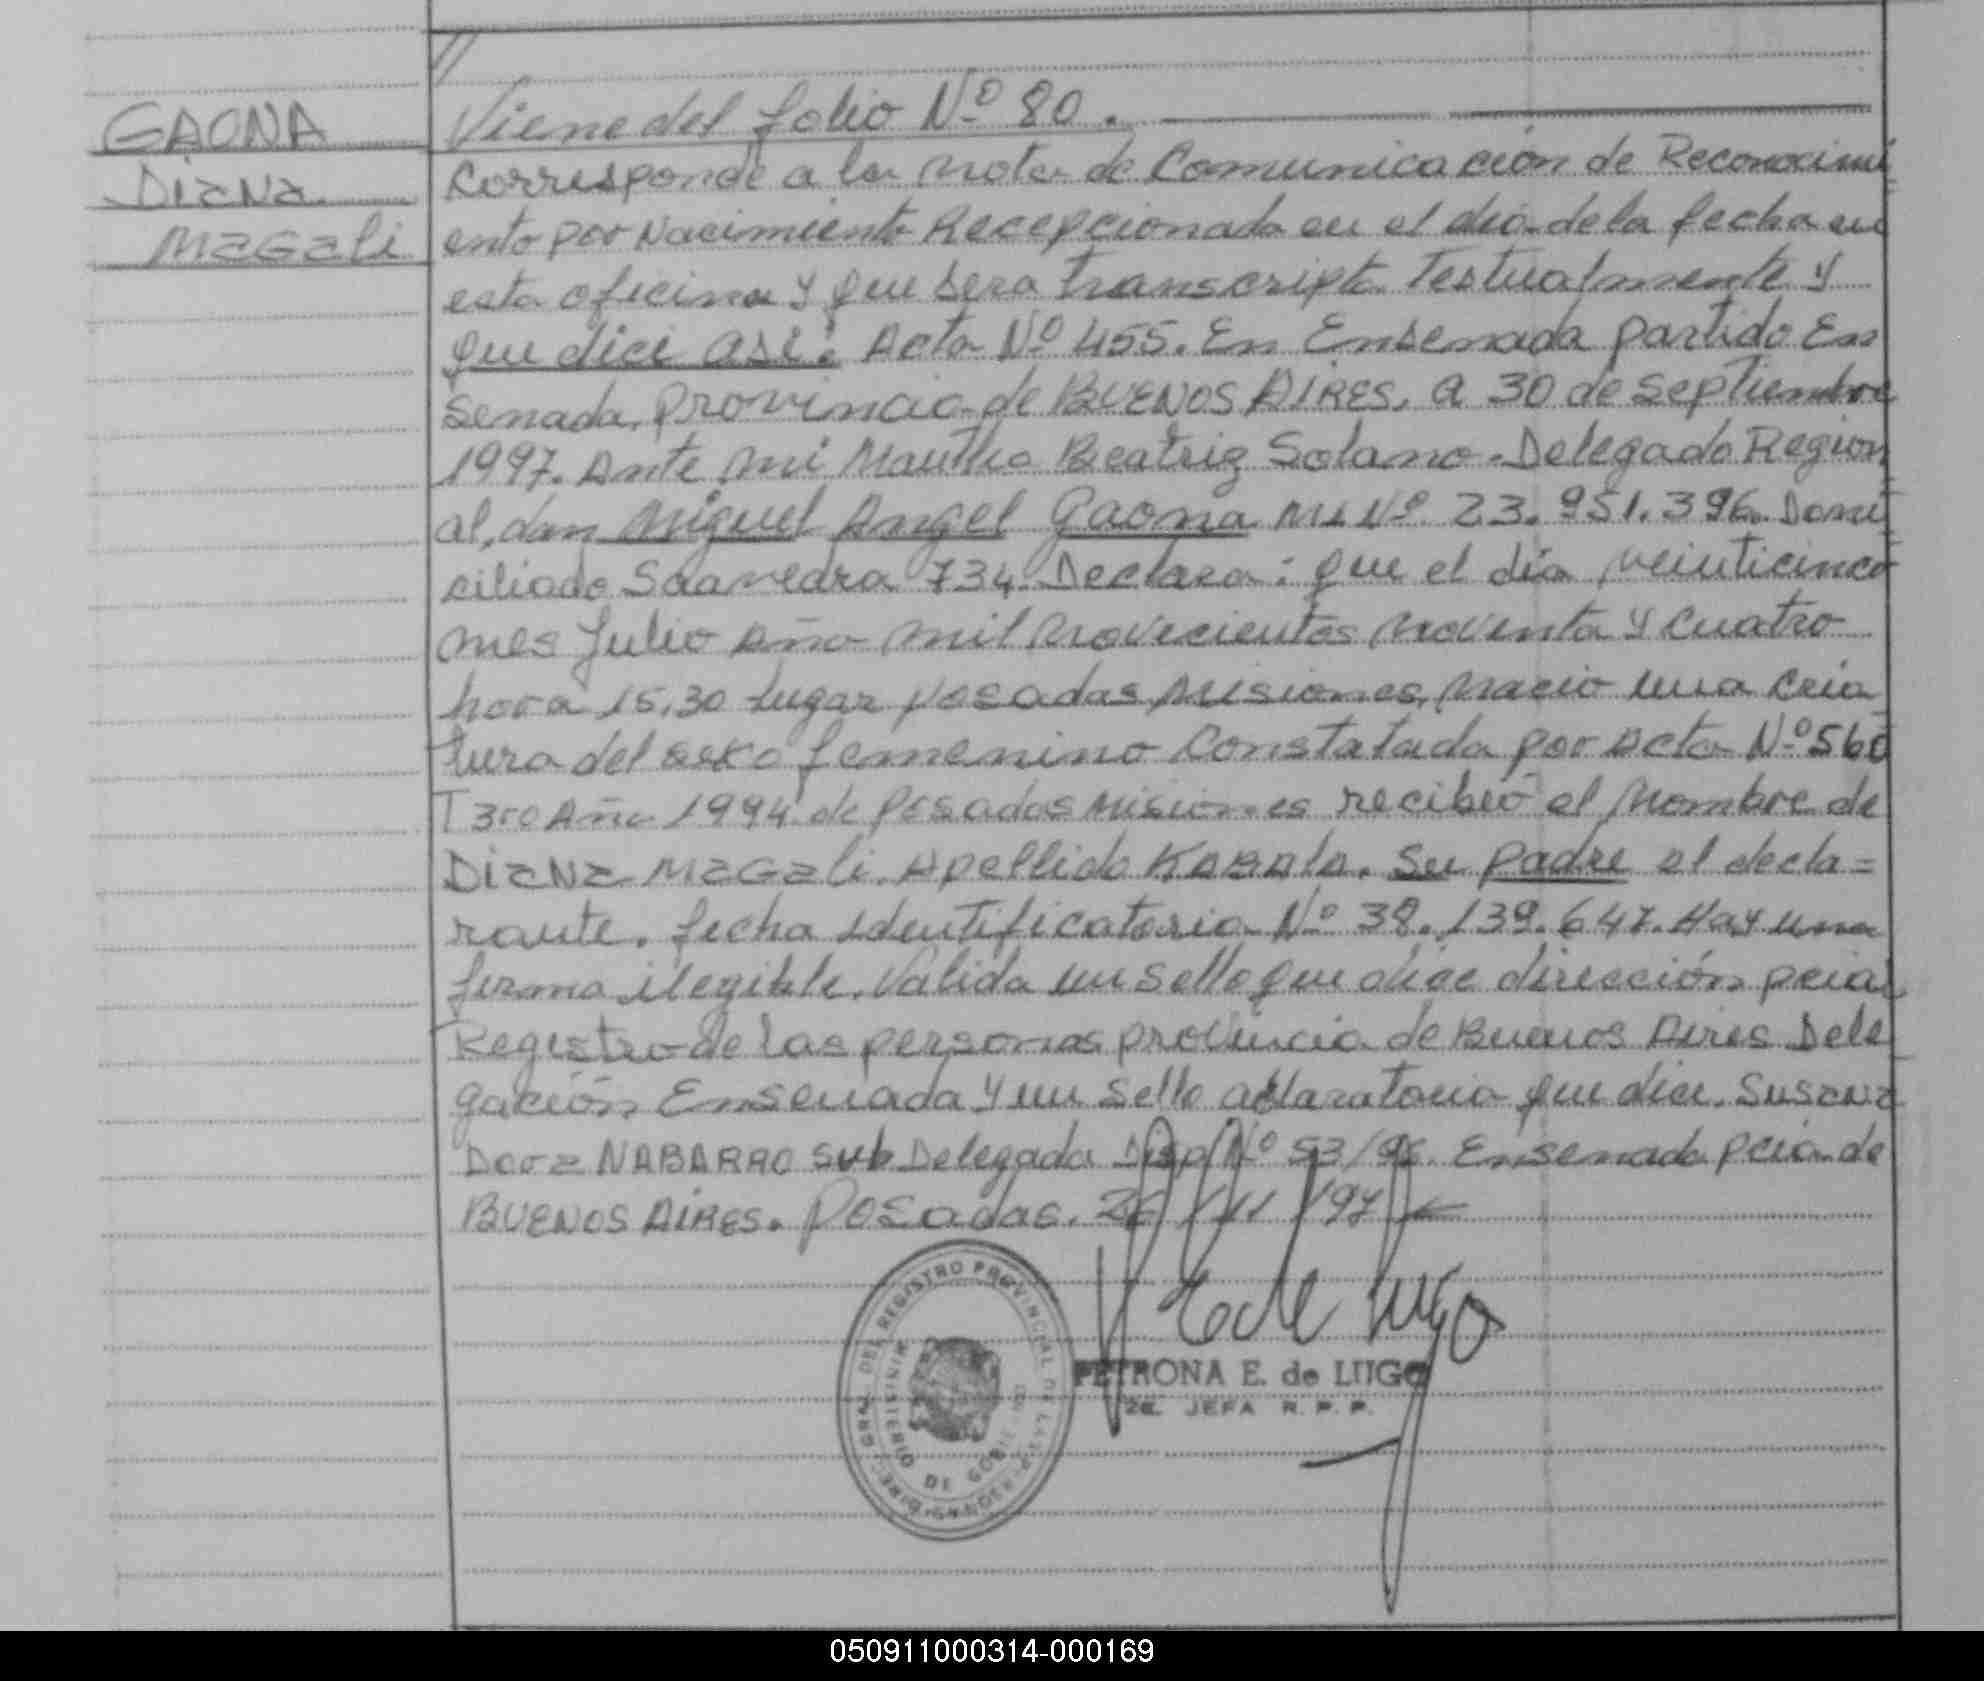 GAONA
Diana
Magali
Viene del folio Nº 80.
Corresponde a la nota de Comunicación de Reconocimi
ento por Nacimiento Recepcionada en el dia de la fecha en
esta oficina y que sera transcripta Testualmente y
que dice asi: Acta Nº 455. En Ensenada partido En
senada, provincia de BUENOS AIRES, a 30 de Septiembre
1997. Ante mi Beatriz Solano. Delegado Region
al, don Miguel Angel Gaona MI Nº 23.951.396. Domi
ciliado Saavedra 734. Declara: que el dia veinticinco
mes Julio Año mil novecientos noventa y cuatro
hora 15,30 lugar posadas Misiones, nacio una cria
tura del sexo femenino Constatada por Acta Nº 560
T 3ro Año 1994 de Posadas Misiones recibió el Nombre de
Diana Magali. Apellido KABALA. Su padre el decla=
rante. ficha identificatoria Nº 38.139.647. Hay una
firma ilegible. Valida un sello que dice dirección pcial
Registro de las personas provincia de Buenos Aires Dele
gación Ensenada y un sello aclaratorio que dice. Susana
Dora NABARRO Sub Delegada Disp Nº 53/96. Ensenada pcia de
BUENOS AIRES. Posadas. 26/11/97
E de Lugo
DIREC. GRAL. DEL REGISTRO PROVINCIAL DE LAS PERSONAS
MINISTERIO DE GOBIERNO
PETRONA E. de LUGO
2a. JEFA R. P. P.
050911000314-000169